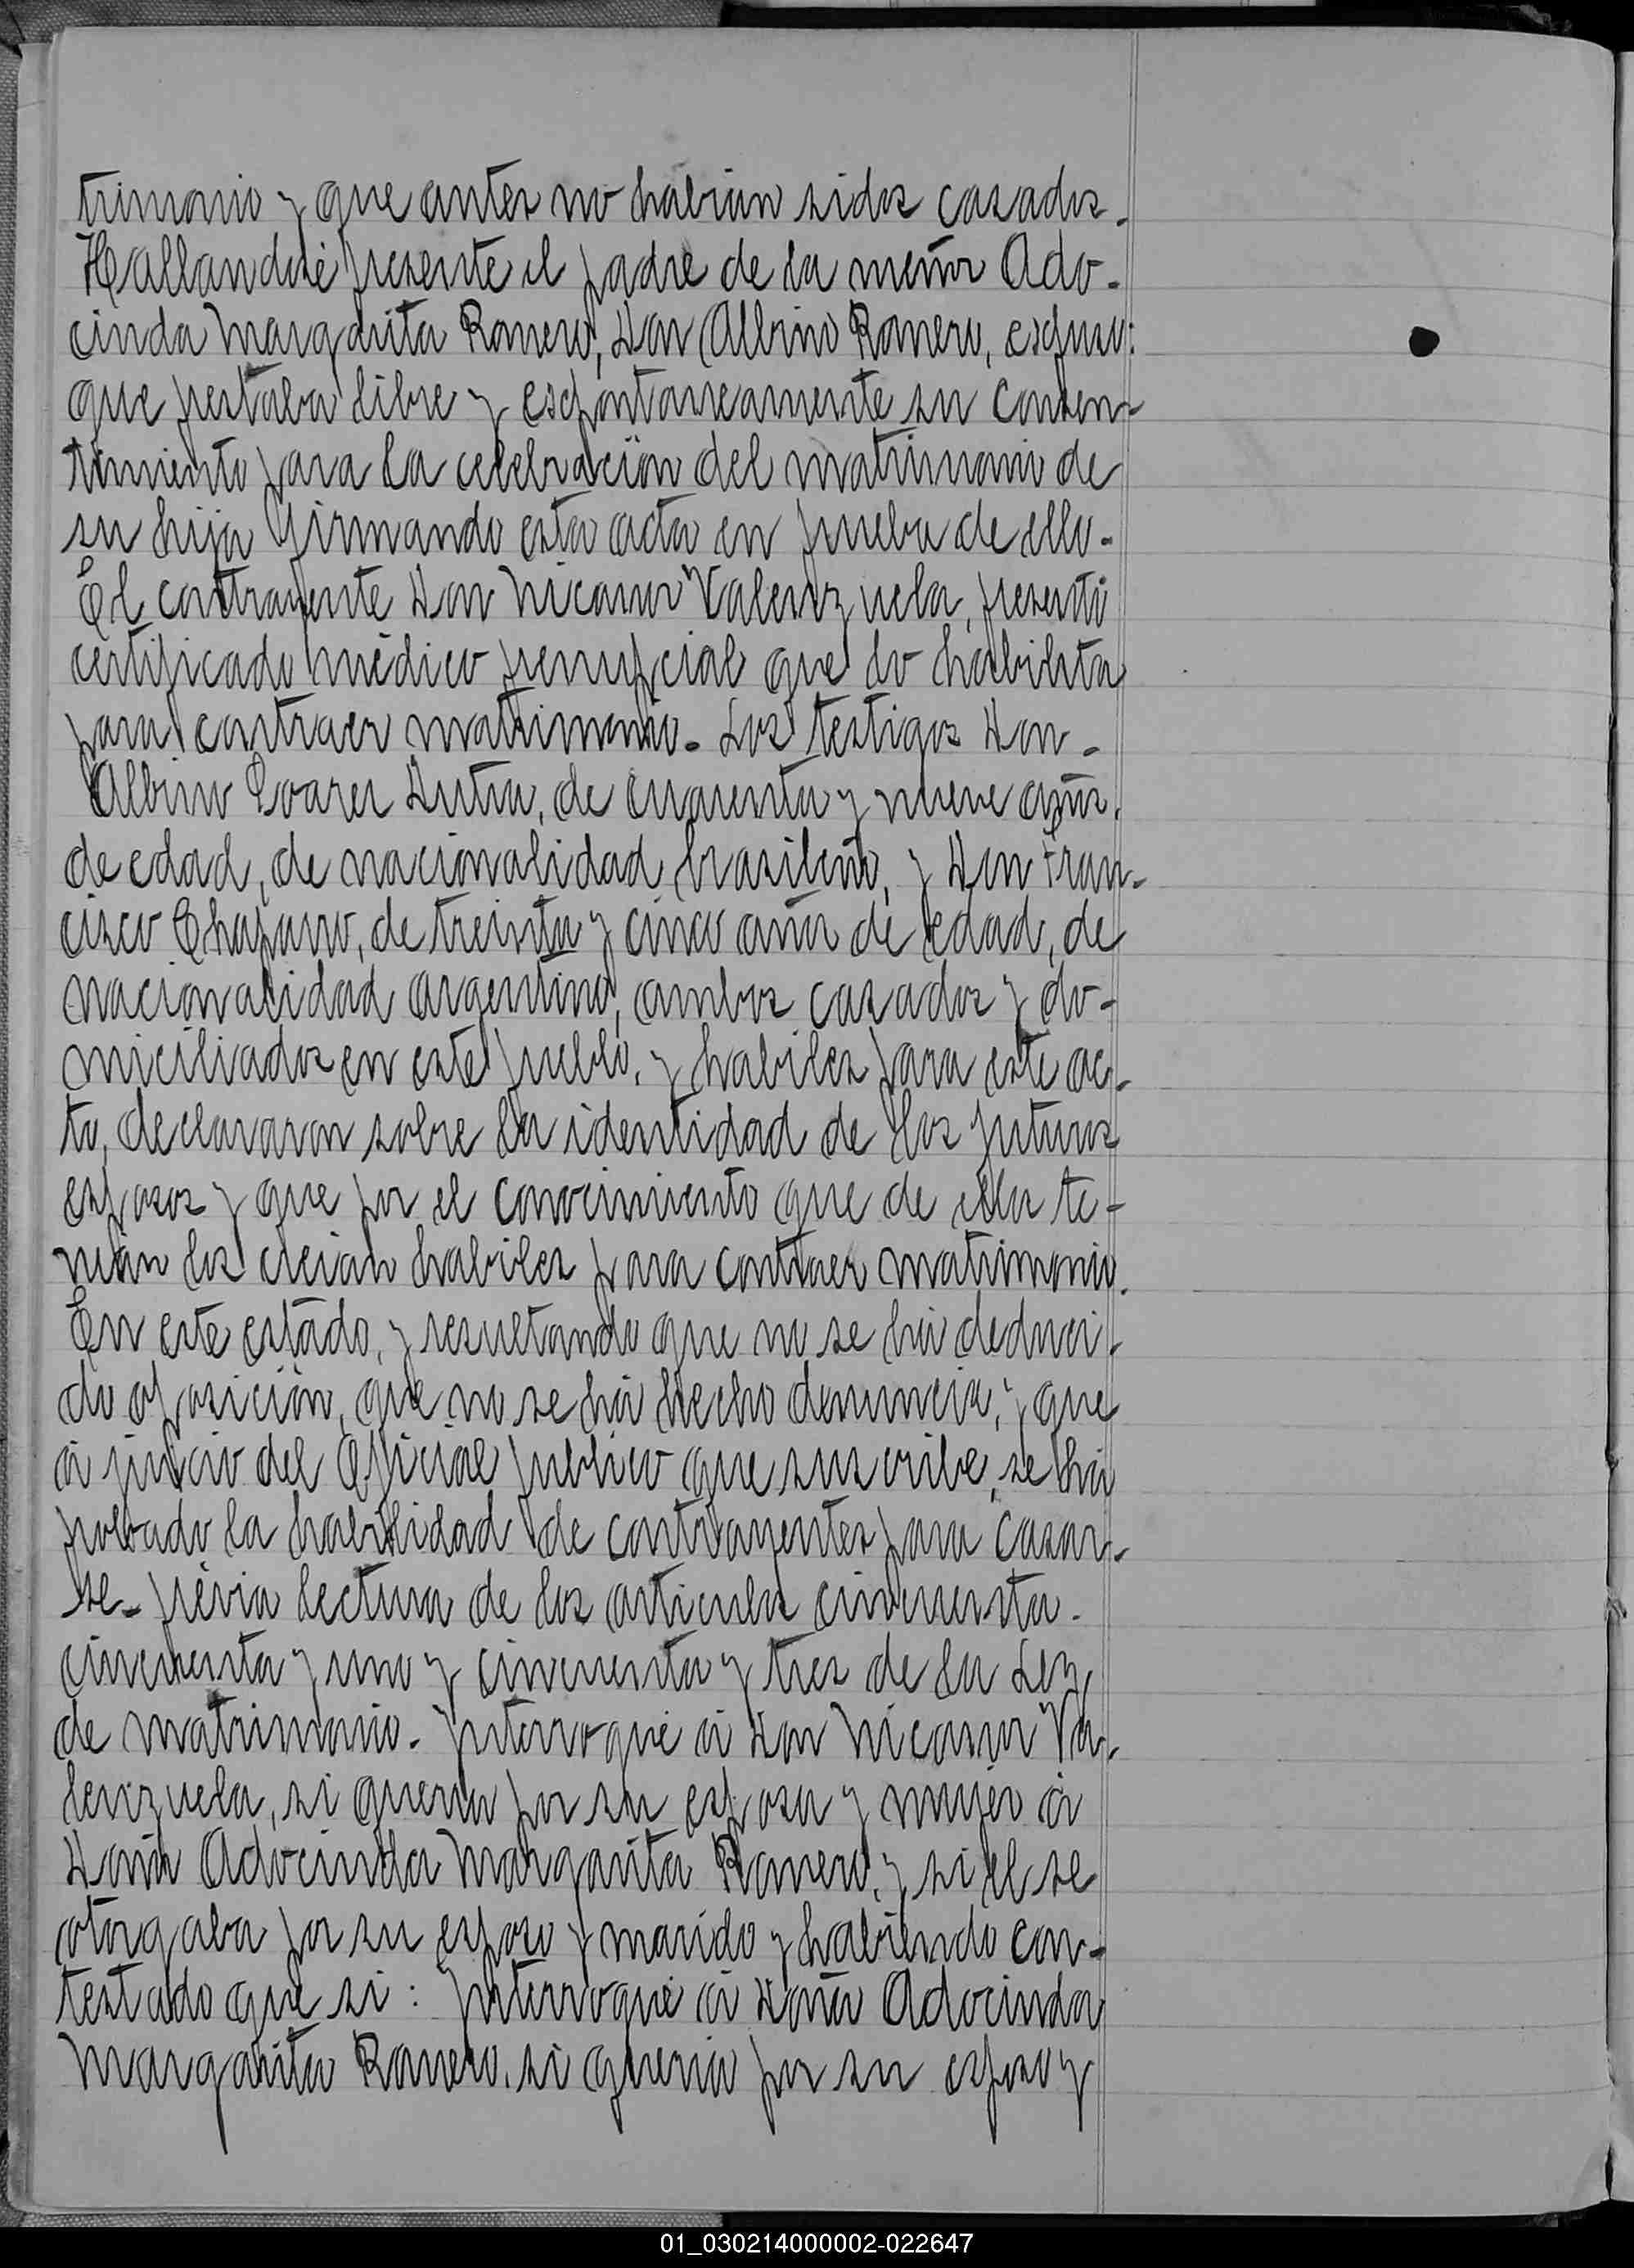 trimonio y que antes no habian sidos casados.
Hallandosé presente el padre de la menor Ado-
cinda Margarita Romero, Don Albino Romero, expuso:
que prestaba libre y espontaneamente su consen-
timiento para la celebración del matrimonio de
su hija firmando esta acta en prueba de ello.
El contrayente Don Nicanor Valenzuela, presentó
certificado médico prenupcial que lo habilita
para contraer matrimonio. Los testigos Don
Albino Soarez Dutra, de cuarenta y nueve años
de edad, de nacionalidad brasileño, y Don Fran-
cisco Chaparro, de treinta y cinco años de edad, de
nacionalidad argentino, ambos casados y do-
miciliados en este pueblo, y habiles para este ac-
to, declararon sobre la identidad de los futuros
esposos y que por el conocimiento que de ellos te-
nian los creian habiles para contraer matrimonio.
En este estado, y resultando que no se há deduci-
do oposición, que no se há hecho denuncia, y que
á juicio del Oficial publico que suscribe, se há
probado la habilidad de contrayentes para casar-
se- prévia lectura de los articulos cincuenta-
cincuenta y uno y cincuenta y tres de la Ley
de matrimonio. Interrogué á Don Nicanor Va-
lenzuela, si queria por su esposa y mujer á
Doña Adocinda Margarita Romero, y si él se
otorgaba por su esposo y marido y habiendo con-
testado que si: Interrogué á Doña Adocinda
Margarita Romero, si queria por su esposo y
01_030214000002-022647